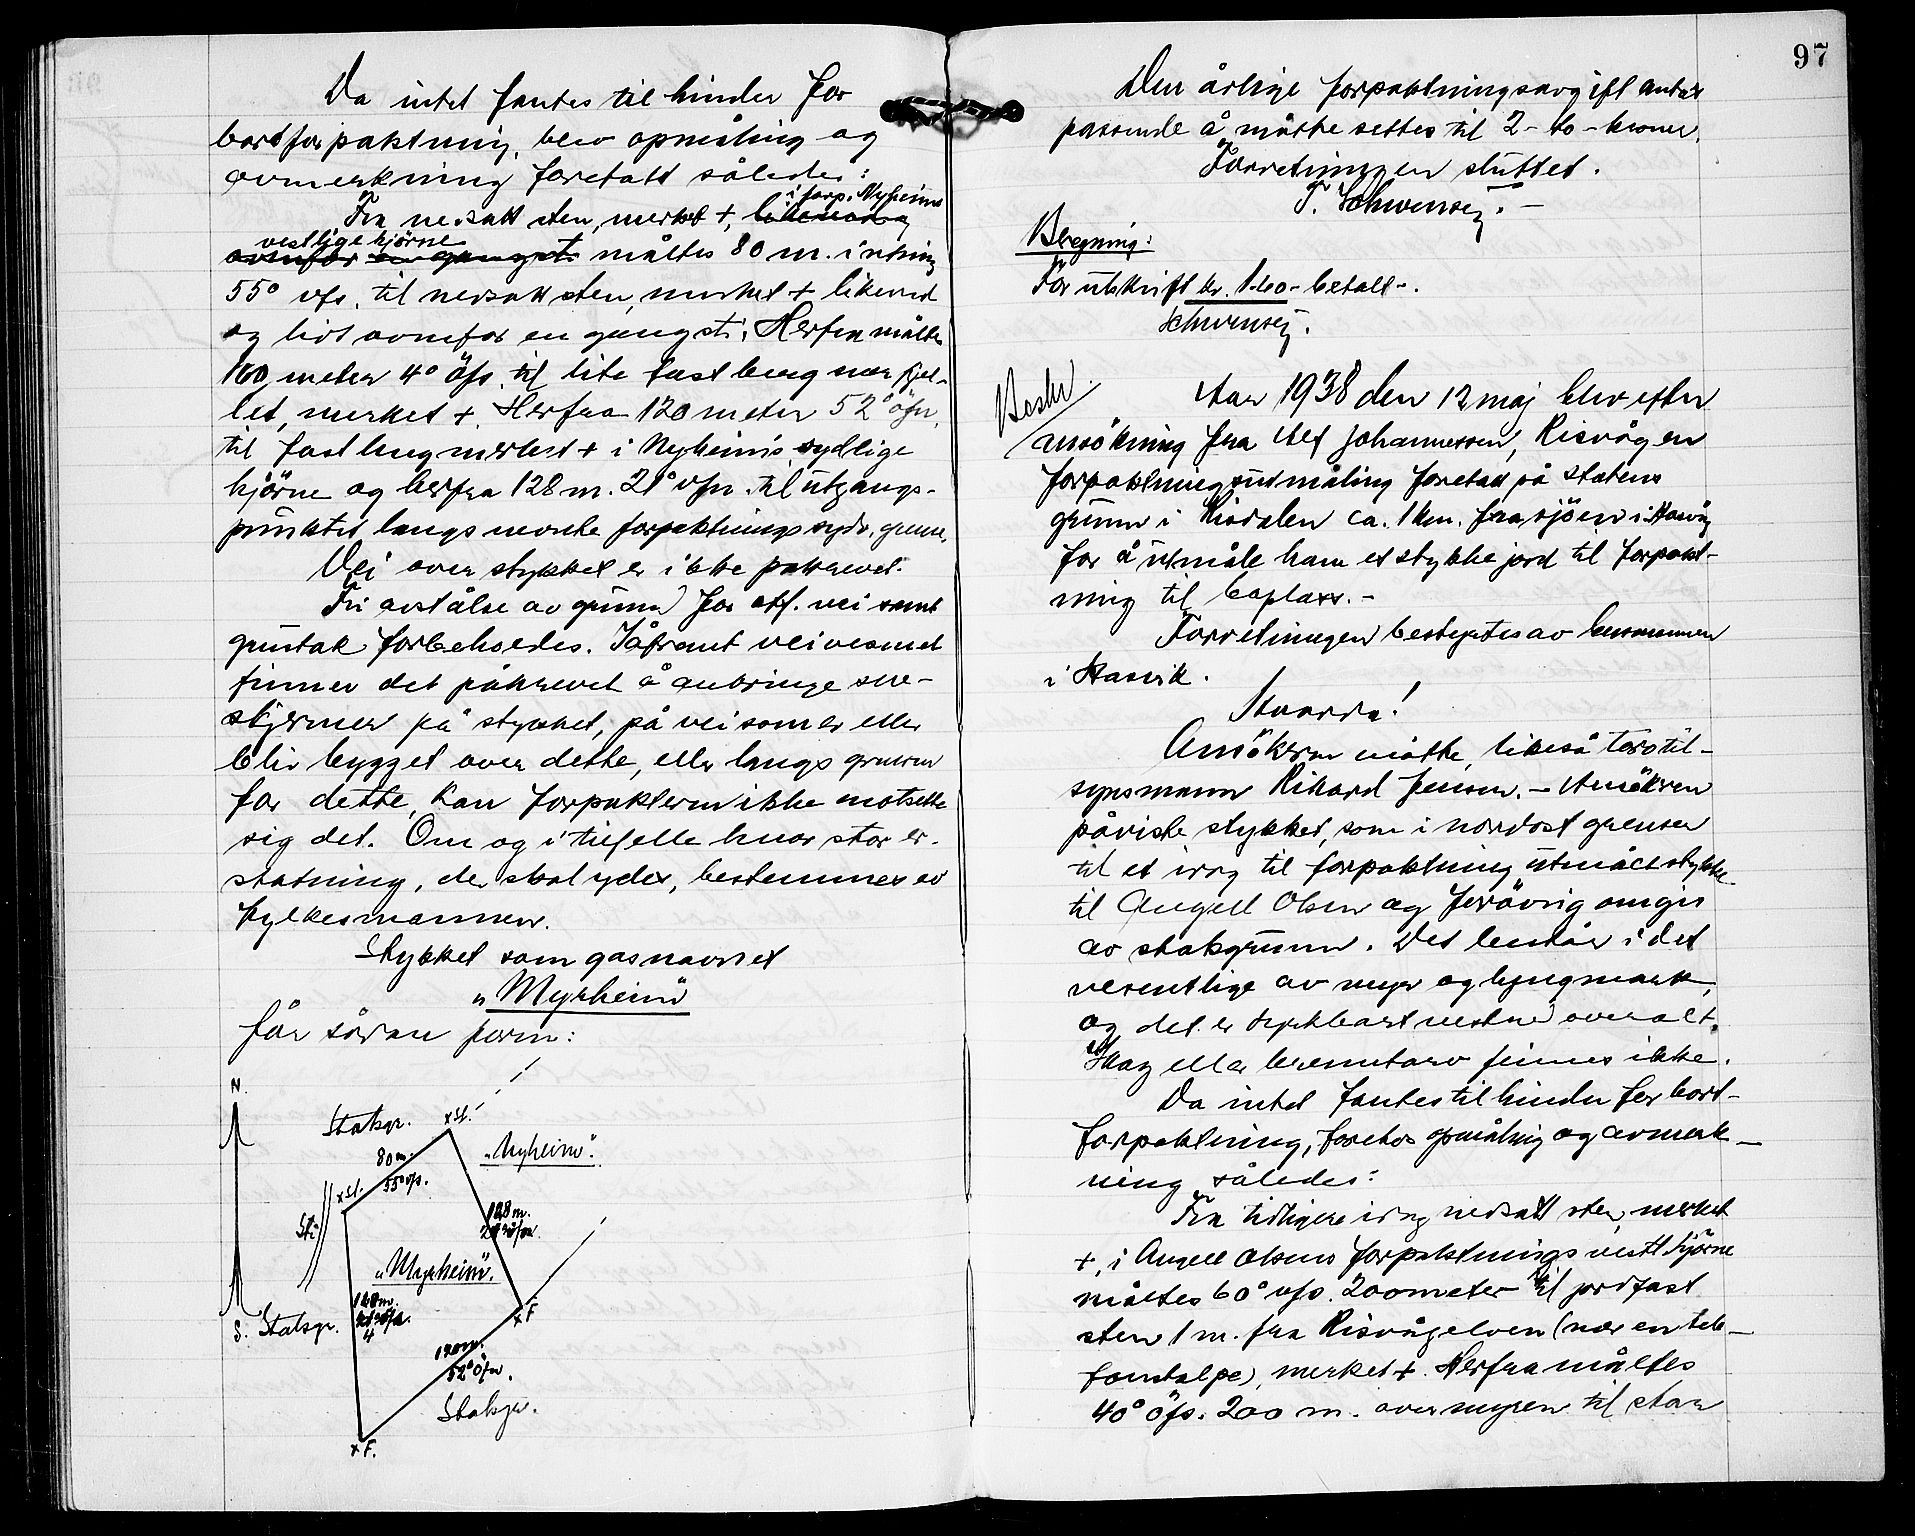 Da intet fantes til hinder for
bortforpaktning, blev opmåling og
avmerkning foretatt således:
Fra nedsatt sten, merket +, i forp. Nyheims
vestlige hjörne måltes 80 m. i retning
55° vfs. til nedsatt sten, merket + likeved
og litt ovenfor en gangsti. Herfra måltes
160 meter 4° öfs. til lite fast berg nær fjel-
let, merket +. Herfra 120 meter 52° öfn.
til fast berg merket + i Nyheims sydlige
hjörne og herfra 128 m. 21° vfn. til utgangs-
punktet langs nevnte forpaktnings sydv. grense.
Vei over stykket er ikke påkrevet.
Fri avståelse av grunn for off. vei samt
grustak forbeholdes. Såfremt veivesenet
finner det påkrevet å anbringe sne-
skjermer på stykket, på vei som er eller
blir bygget over dette, eller langs grensen
for dette, kan forpakteren ikke motsette
sig det. Om og i tilfelle hvor stor er-
statning, der skal ydes, bestemmes av
fylkesmannen.
Stykket som gas navnet
"Myrheim"
får sådan form:
N.
Statsgr.
x St.
80 m.
55° vfs.
"Nyheim".
x St.
Sti
128 m.
21° vfn.
"Myrheim".
160 m.
4
S.
Statsgr.
x F
120 m.
52° öfn.
Statsgr.
x F.
97
Den årlige forpaktningsavgift antas
passende å måtte settes til 2 - to - kroner.
Forretningen sluttet.
T. Schwensen. -
Beregning:
For utskrift kr. 1.60 - betalt -.
Schwensen.
Beskr.
Aar 1938 den 12 maj blev efter
ansökning fra Alf Johannessen, Risvåg en
forpaktningsutmåling foretatt på statens
grunn i Risdalen ca. 1 km. fra sjöen i Hasvåg
for å utmåle ham et stykke jord til forpakt-
ning til boplass. -
Forretningen bestyrtes av lensmannen
i Hasvik.
Hvorda!
Ansökeren mötte, likeså torvtil-
synsmann Rikard Jensen. - Ansökeren
påviste stykket, som i nordost grenser
til et idag til forpaktning utmålt stykke
til Angell Olsen og forövrig omgis
av statsgrunn. Det består i det
vesentlige av myr og lyngmark,
og det er dyrkbart nesten overalt.
Skog eller brenntorv finnes ikke.
Da intet fantes til hinder for bort-
forpaktning, foretos opmåling og avmerk-
ning således:
Fra tidligere idag nedsatt sten, merket
+, i Angell Olsens forpaktnings vestl. hjörne
måltes 60° vfs. 200 meter til jordfast
sten 1 m. fra Risvågelven (nær en tele-
fonstolpe), merket +. Herfra måltes
40° öfs. 200 m. over myren til stor